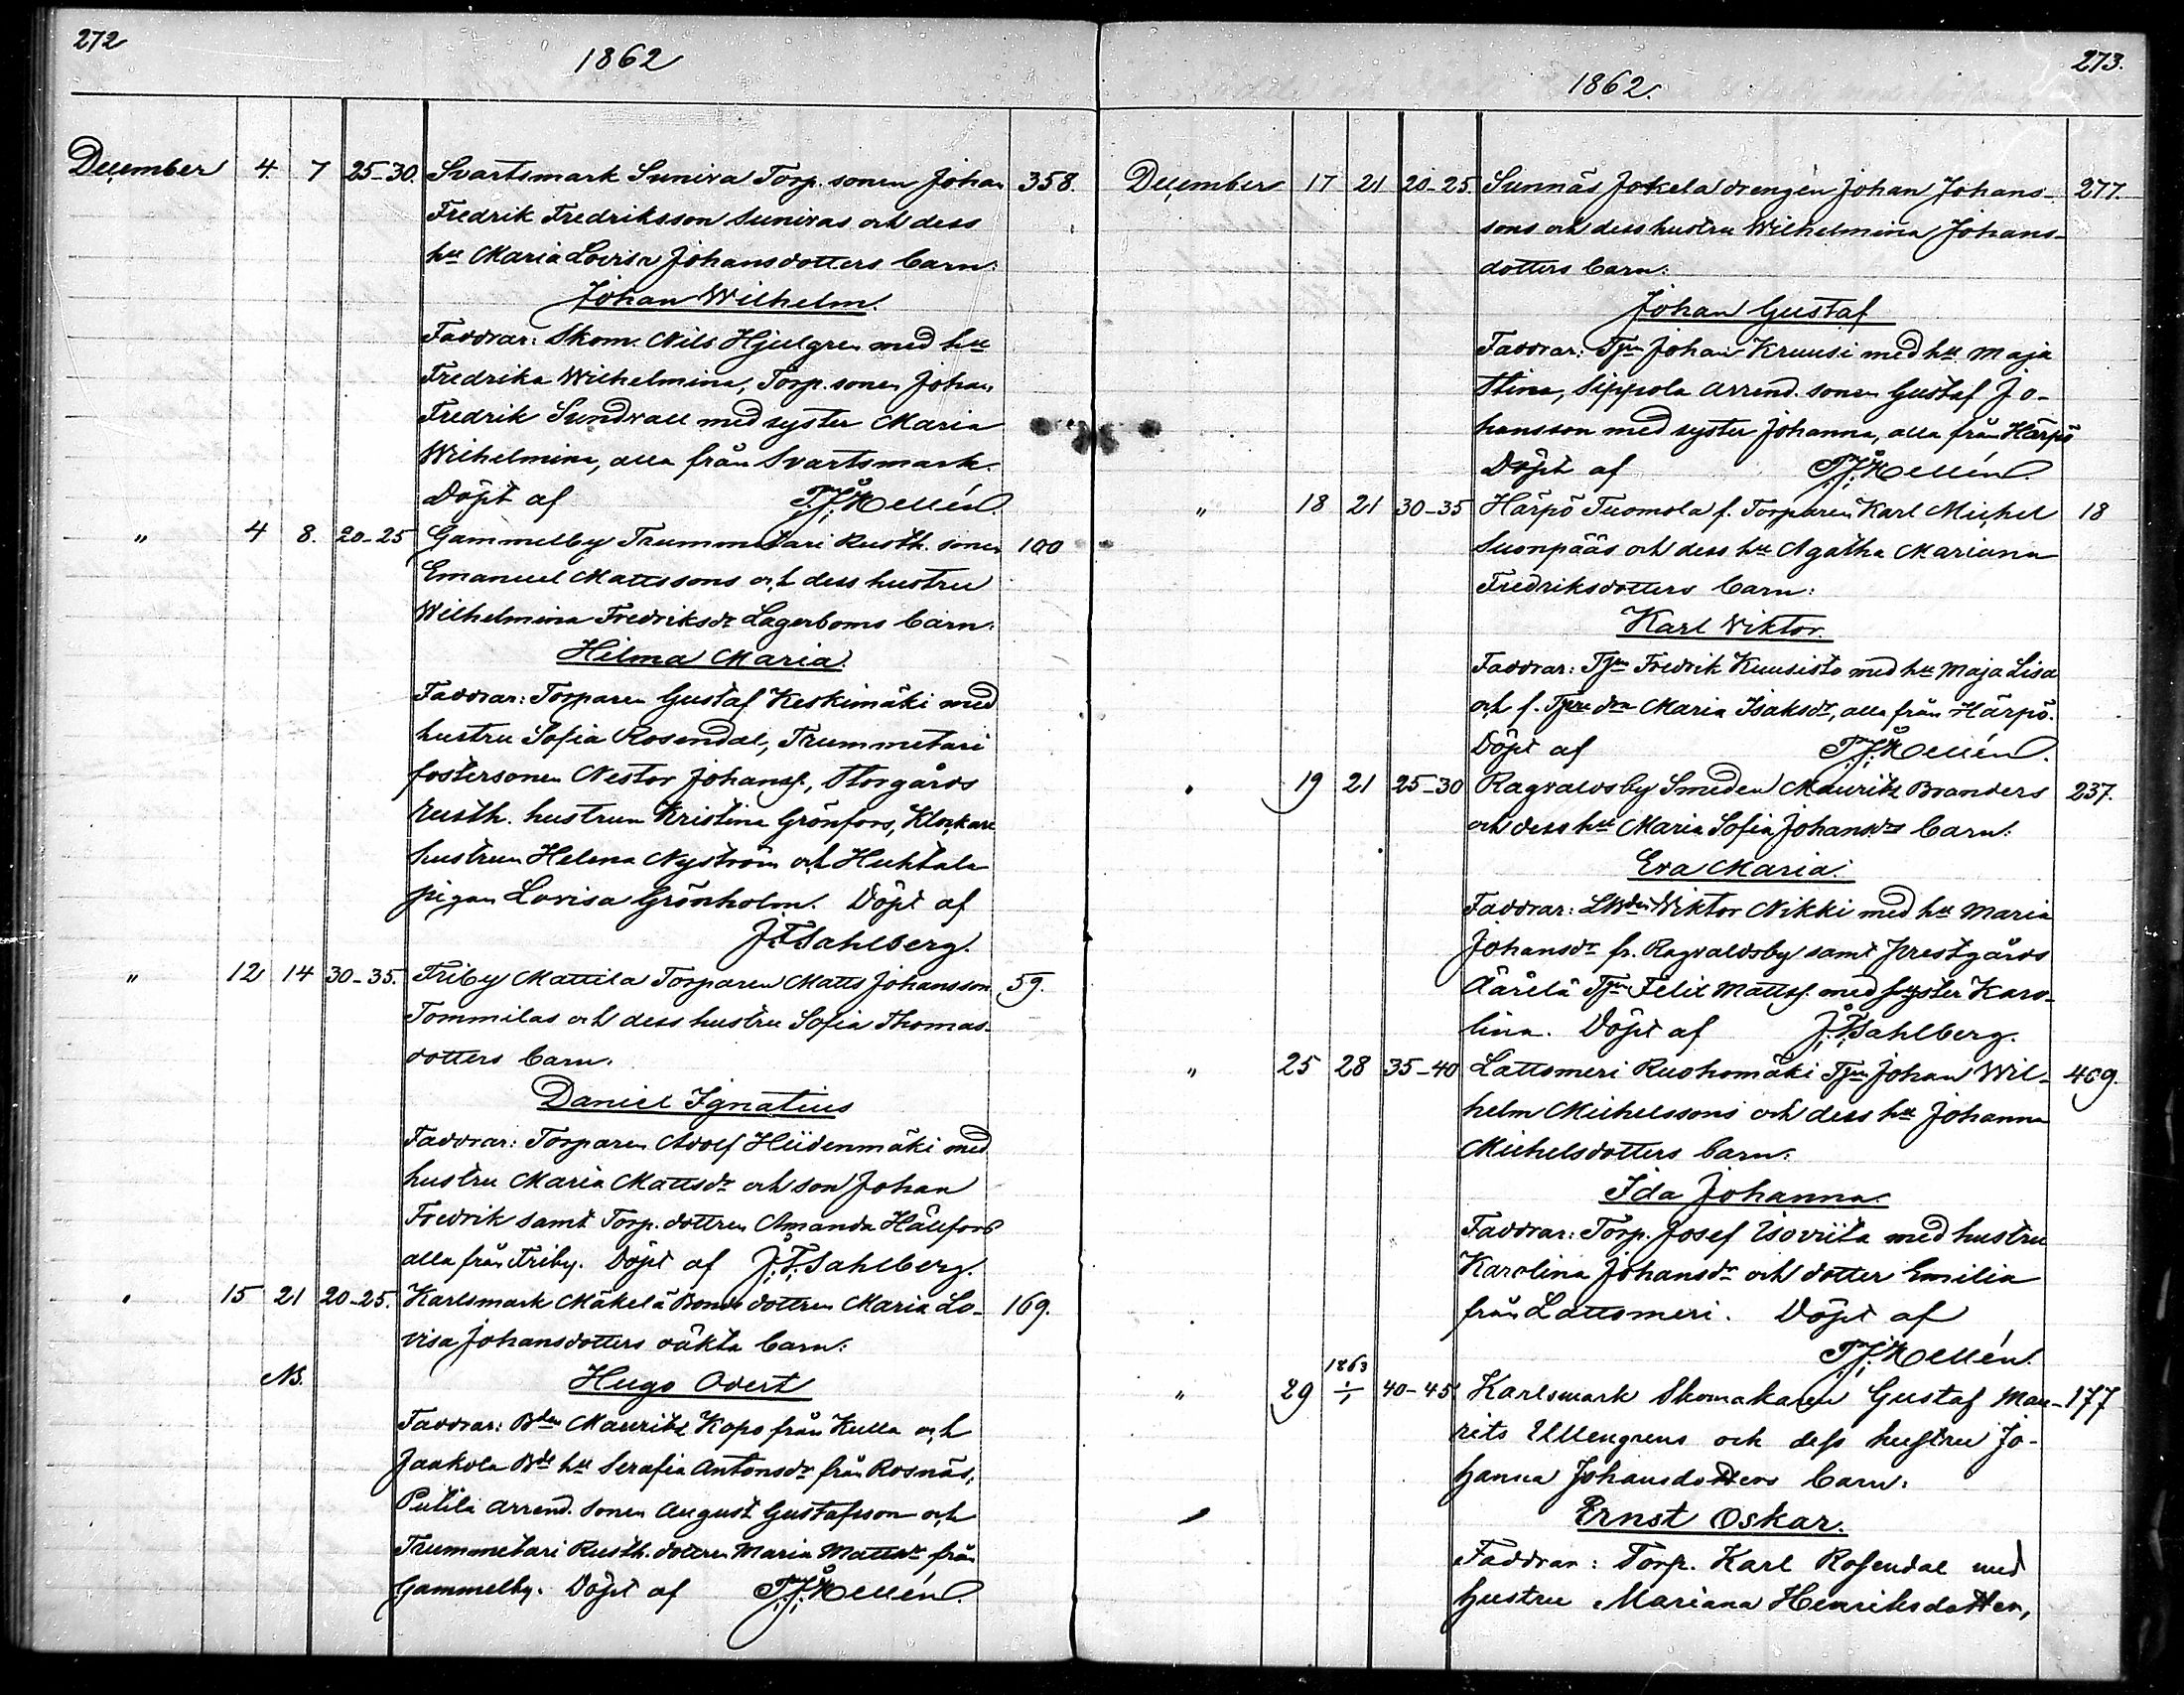 272
1862
December 4. 7 25-30. Svartsmark Suniva Torp. sonen Johan 358.
Fredrik Fredriksson Sunivas och dess
hu Maria Lovisa Johansdotters barn:
Johan Wilhelm.
Faddrar: Skom. Nils Hjulgren med hu
Fredrika Wilhelmina, Torp. sonen Johan
Fredrik Sundvall med syster Maria
Wilhelmina, alla från Svartsmark.
Döpt af T.J. Hellén.
" 4 8. 20-25 Gammelby Trummetari Rusth. sonen 100
Emanuel Mattssons och dess hustru
Wilhelmina Fredriksdr Lagerboms barn:
Hilma Maria.
Faddrar: Torparen Gustaf Keskimäki med
hustru Sofia Rosendal, Trummetari
fostersonen Nestor Johanss., Storgårds
rusth. hustrun Kristina Grönfors, Klockare
hustrun Helena Nyström och Huhtala
pigan Lovisa Grönholm. Döpt af
J.F. Sahlberg.
" 12 14 30-35. Friby Mattila Torparen Matts Johansson 59.
Tommilas och dess hustru Sofia Thomas-
dotters barn.
Daniel Ignatius
Faddrar: Torparen Adolf Hiidenmäki med
hustru Maria Mattsdr och son Johan
Fredrik samt Torp. dottren Amanda Hällfors
alla från Friby. Döpt af J.F. Sahlberg.
" 15 21 20-25. Karlsmark Mäkelä Bonde dottren Maria Lo- 169.
visa Johansdotters oäkta barn:
NB. Hugo Overt
Faddrar: Bden Mauritz Kopo från Kulla och
Jaakola Bde hu Serafia Antonsdr från Rosnäs,
Putila arrend. sonen August Gustafsson och
Trummetari Rusth. dottren Maria Mattsdr från
Gammelby. Döpt af T.J. Hellén.
273.
1862.
December 17 21 20-25. Sunnäs Jokela drengen Johan Johans- 277.
sons och dess hustru Wilhelmina Johans-
dotters barn:
Johan Gustaf
Faddrar: Tjn Johan Kruusi med hu Maja
Stina, Sippola arrend. sonen Gustaf Jo-
hansson med syster Johanna, alla från Härpö
Döpt af T.J. Hellén.
" 18 21 30-35 Härpö Tuomola f. Torparen Karl Michel 18
Suonpääs och dess hu Agatha Mariana
Fredriksdotters barn:
Karl Viktor.
Faddrar: Tjn Fredrik Kuusisto med hu Maja Lisa
och f. Tjnre dra Maria Isaksdr, alla från Härpö.
Döpt af T.J. Hellén.
" 19 21 25-30 Ragvaldsby Smeden Mauritz Branders 237.
och dess hu Maria Sofia Johansdrs barn:
Eva Maria.
Faddrar: LBden Wiktor Nikki med hu Maria
Johansdr fr. Ragvaldsby samt Prestgårds
Äärelä Tjn Felix Mattss. med syster Karo-
lina. Döpt af J.F. Sahlberg.
" 25 28 35-40 Lattomeri Ruohomäki Tjn Johan Wil- 469.
helm Michelssons och dess hu Johanna
Michelsdotters barn:
Ida Johanna.
Faddrar: Torp. Josef Isoviita med hustru
Karolina Johansdr och dotter Emilia
från Lattomeri. Döpt af
T.J. Hellén.
1863
" 29 1/1 40-45 Karlsmark Skomakaren Gustaf Mau- 177
rits Ullengrens och dess hustru Jo-
hanna Johansdotters barn:
Ernst Oskar.
Faddrar: Torp. Karl Rosendal med
hustru Mariana Henriksdotter,